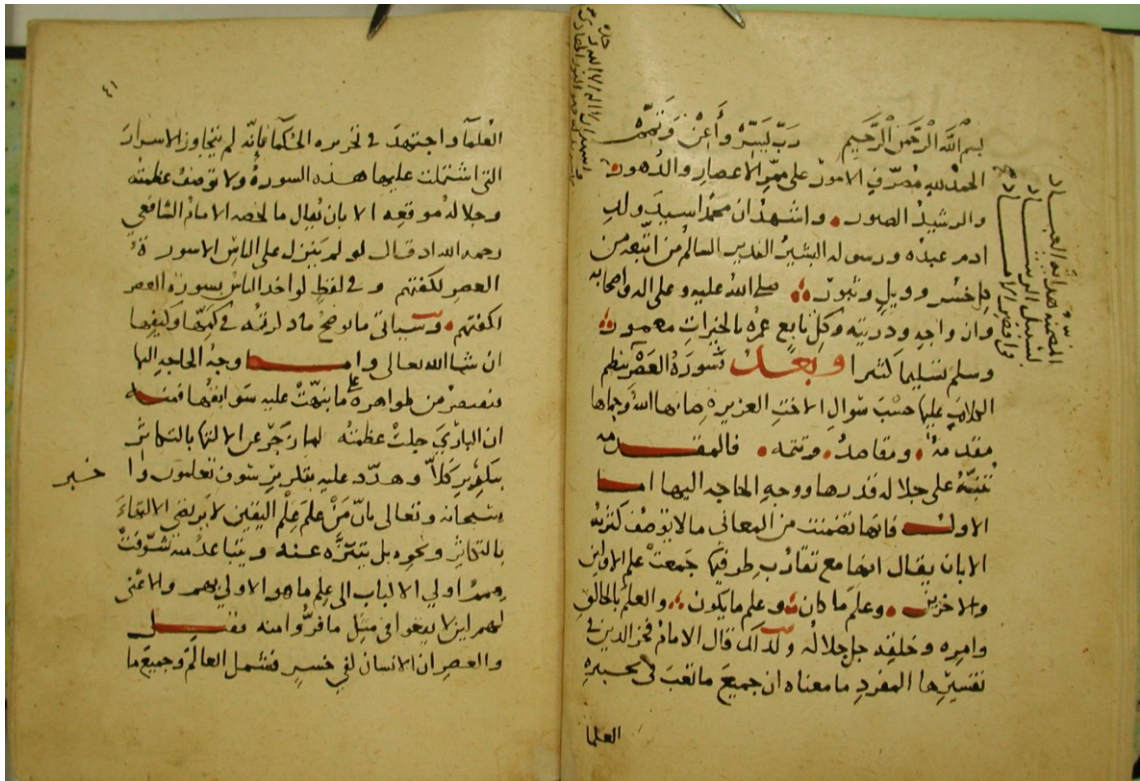 بسم الله الرحمن الرحيم رب يسر وأعن وتممه
الحمد لله مصرف الامور على ممر الاعصار والدهور
والرشيد الصور واشهد ان محمدا سيد ولد
ادم عبده ورسوله البشير النذير السالم من اتبعه من
كل خسر وويل وثبور صلى الله عليه وعلى اله واصحابه
وازواجه وذريته وكل تابع عمره بالخيرات معمور
وسلم تسليما كثيرا وبعد فسورة العصر ينظم
الكلام عليها حسب سوال الاخت العزيزه صانها الله وحماها
مقدمة ومقاصد وتتمه فالمقدمه
على جلاله قدرها ووجه الحاجه اليها اما
الاول فانها تضمنت من المعاني مالا توصف كثرته
الا بان يقال انها مع تقارب طرفيها جمعت علم الاولين
والاخرين وعلم ما كان وعلم ما يكون والعلم بالخالق
وامره وخلقه جل جلاله ولذلك قال الامام فخر الدين في
تفسيرها المفرد ما معناه ان جميع ما تعب في تحبيره
العلما
المتضمنه هداية العباد
لسبيل الرشاد
٤١
العلما واجتهد في تحريره الحكما فانه لم يتجاوز الاسرار
التي اشتملت عليها هذه السورة ولا توصف عظمته
وجلاله موقعه الا بان يقال ما لخصه الامام الشافعي
رحمه الله اذ قال لو لم ينزل على الناس الا سورة
العصر لكفتهم وفي لفظ لو اخذ الناس بسورة العصر
لكفتهم وسياتي ما يوضح ما ذكرته في كمها وكيفها
ان شا الله تعالى واما وجه الحاجه اليها
فيقتصر من ظواهره على ما نبهت عليه سوابقها فمنه
ان الباري جلت عظمته لما زجر عن الالتها بالتكاثر
بتكرير كلا وهدد عليه بتكرير سوف تعلمون وا خبر
سبحانه وتعالى بان من علم علم اليقين لا يرتضي الالتهاء
بالتكاثر ونحوه بل يتنزه عنه ويتباعد منه تشوفت
همم اولي الالباب الى علم ما هو الاولى بهم والاغنى
لهم لين لا يقعوا في مثل ما فروا منه فقيل
والعصر ان الانسان لفي خسر فشمل العالم وجميع ما